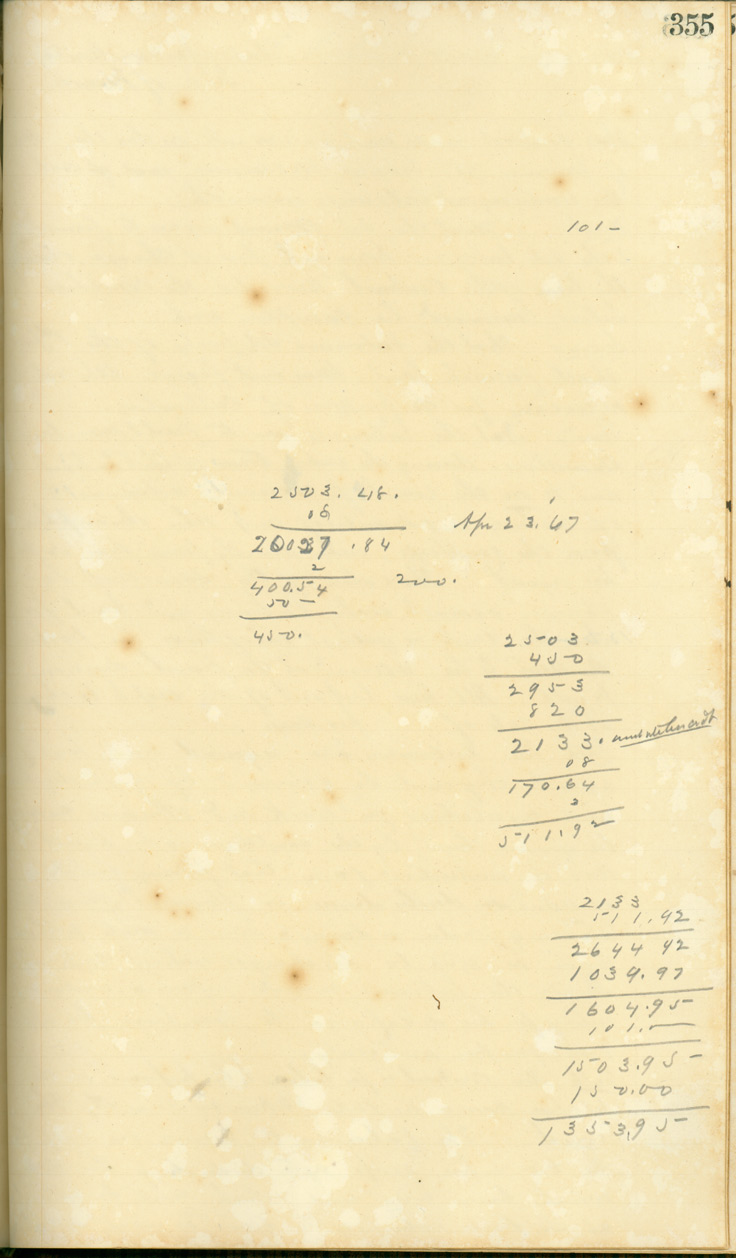 355
101-
2503.48.
08
200.27.84
2
400.54
50-
450.
Apr 23.67
200.
2503
450
2953
820
2133.
08
170.64
3
511.92
2133
511.92
2644 92
1039.97
1604.95
101.-
1503.95
150.00
1353.95